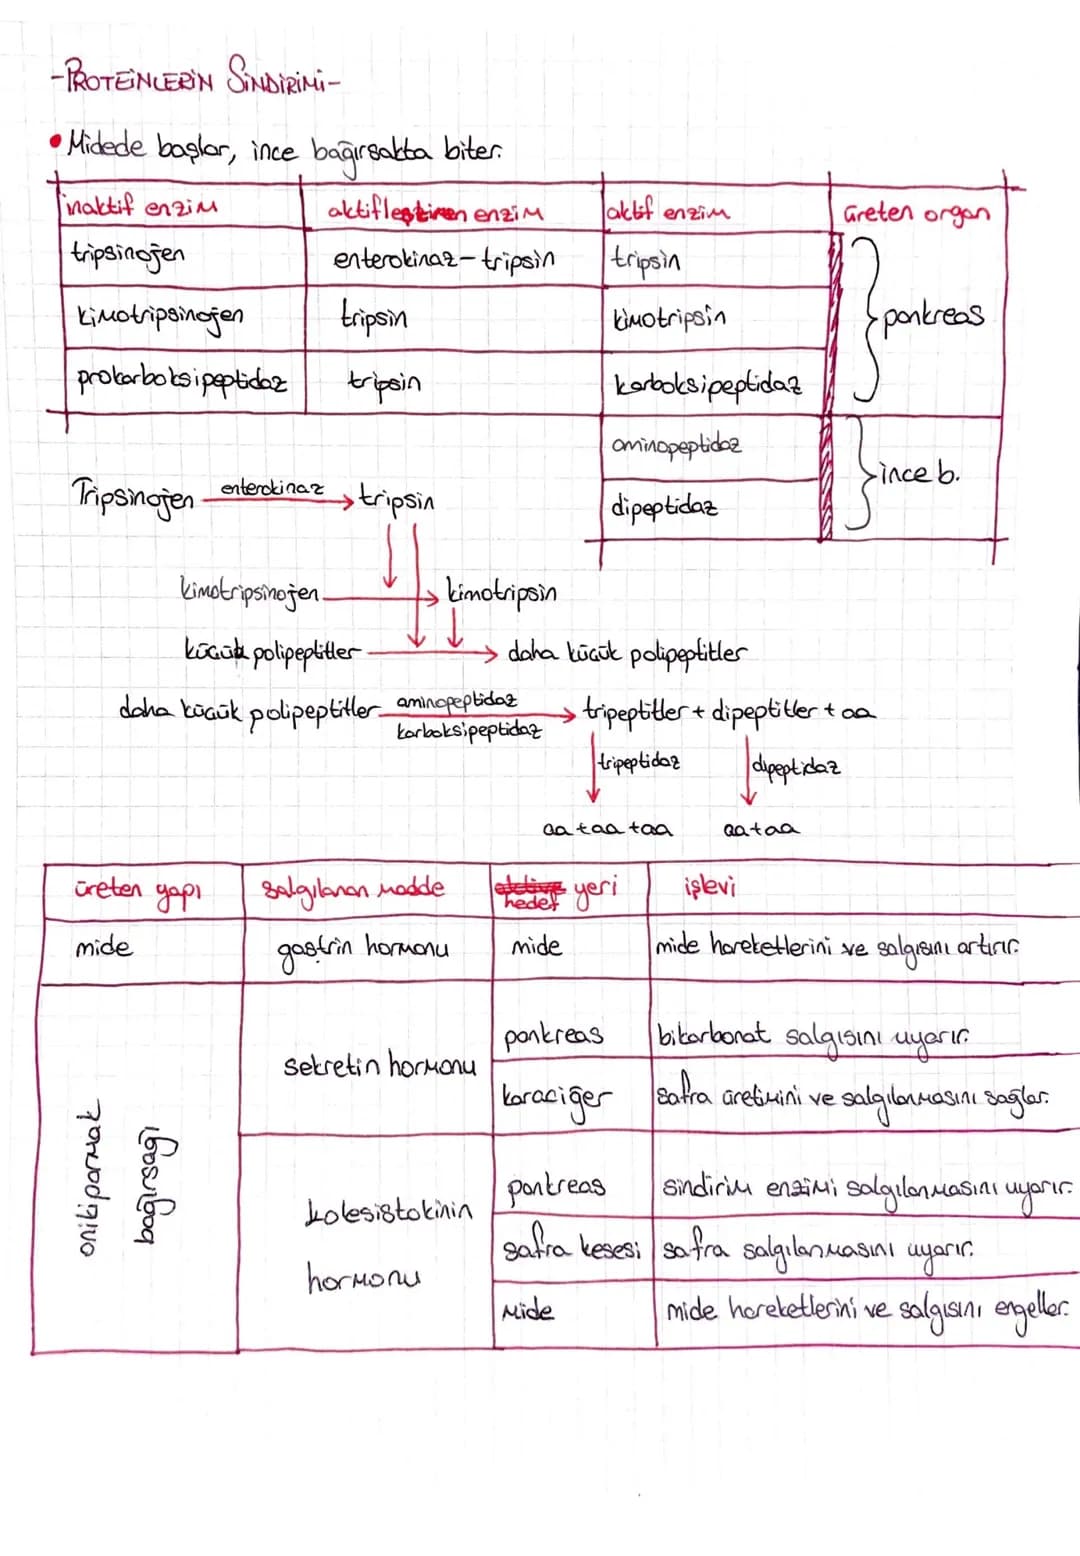 -PROTEİNLERİN SİNDİRİMİ-
• Midede başlar, ince bağırsakta biter.
inaktif enzim aktifleştiren enzim aktif enzim üreten organ
tripsinojen enterokinaz-tripsin tripsin
kimotripsinojen tripsin kimotripsin pankreas
prokarboksipeptidaz tripsin karboksipeptidaz
aminopeptidaz
ince b.
dipeptidaz
Tripsinojen enterokinaz → tripsin
kimotripsinojen → kimotripsin
küçük polipeptitler → daha küçük polipeptitler
daha küçük polipeptitler aminopeptidaz → tripeptitler + dipeptitler + aa
karboksipeptidaz
tripeptidaz dipeptidaz
aa+aa+aa aa+aa
üreten yapı salgılanan madde hedef yeri işlevi
mide gastrin hormonu mide mide hareketlerini ve salgısını artırır.
onikiparmak bağırsağı
sekretin hormonu
pankreas bikarbonat salgısını uyarır.
karaciğer safra üretimini ve salgılanmasını sağlar.
kolesistokinin
hormonu
pankreas sindirim enzimi salgılanmasını uyarır.
safra kesesi safra salgılanmasını uyarır.
mide mide hareketlerini ve salgısını engeller.